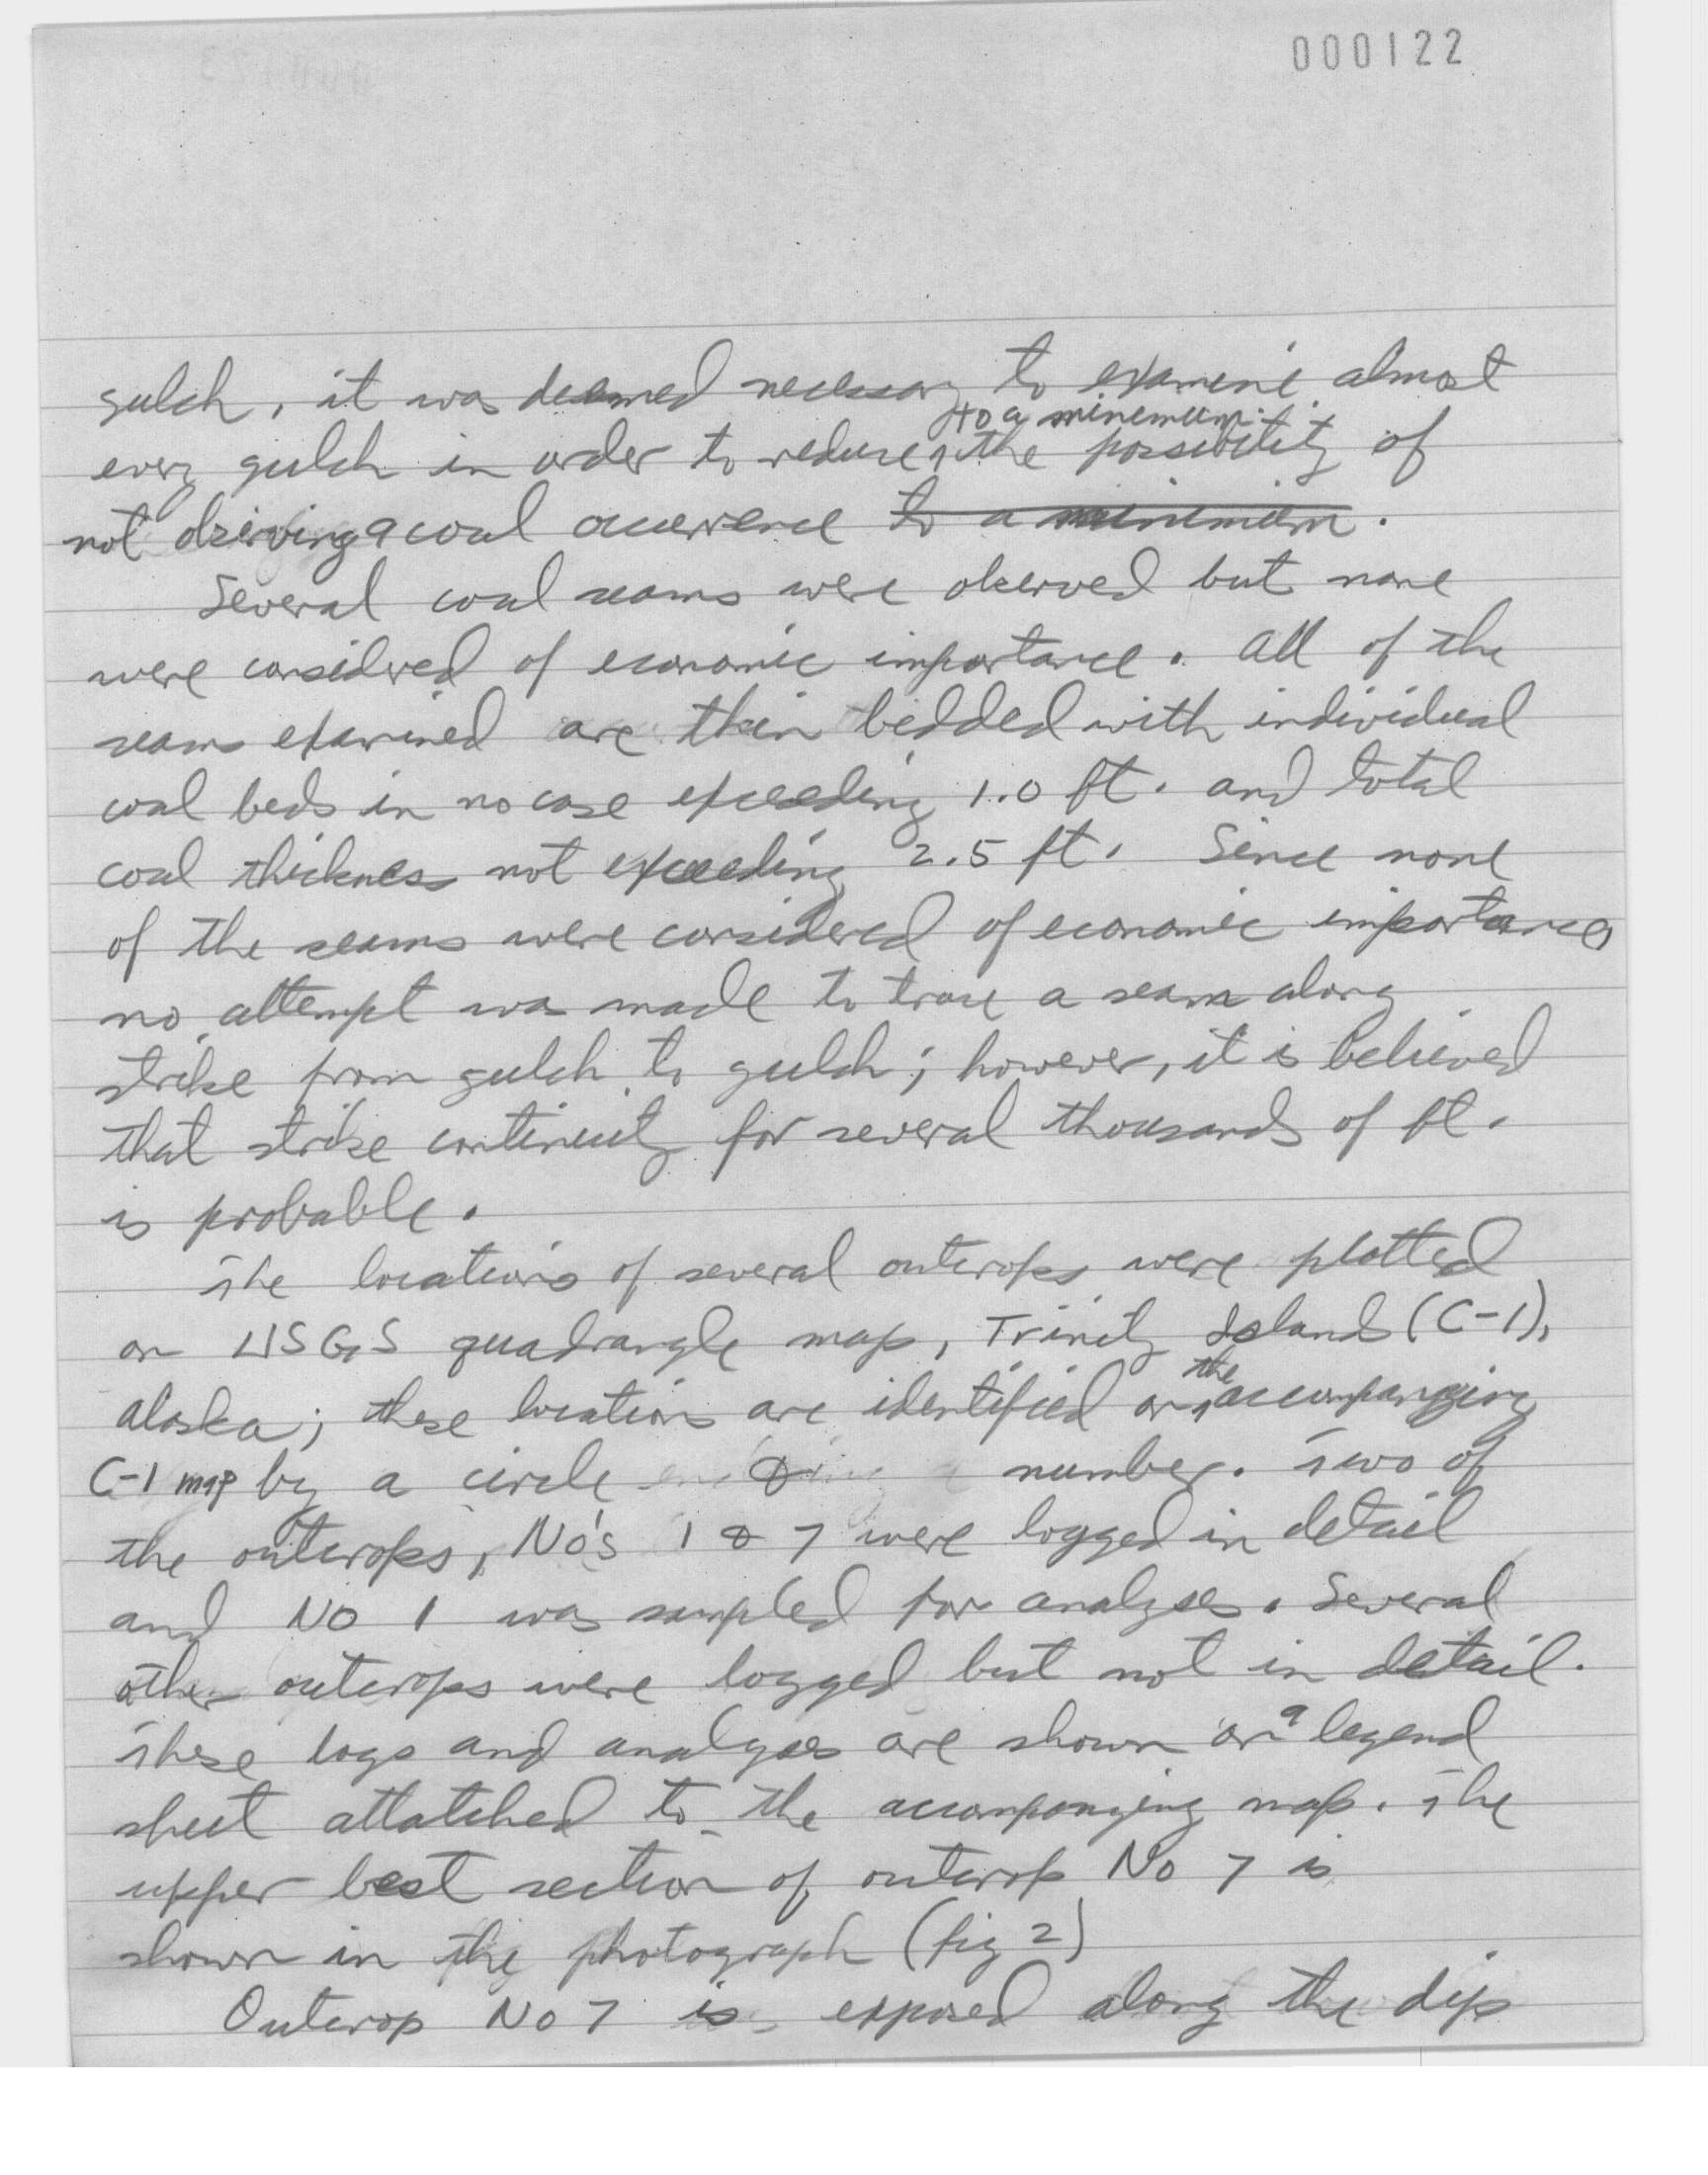 000122
gulch, it was deemed necessary to examine almost
to a minimum
every gulch in order to reduce the possibility of
not obsirving a coal occurrence to a minimum.
Several coal seams were observed but none
were considered of economic importance. All of the
seams examined are thin bedded with individual
coal beds in no case exceeding 1.0 ft. and total
coal thickness not exceeding 2.5 ft. Since none
of the seams were considered of economic importance
no attempt was made to trace a seam along
strike from gulch to gulch; however, it is believed
that strike continuity for several thousands of ft.
is probable.
The locations of several outcrops were plotted
on USGS quadrangle map, Trinity Island (C-1),
the
Alaska; these locations are identified on accompanying
C-1 map by a circle & number. Two of
the outcrops, No's 1 & 7 were logged in detail
and No 1 was sampled for analyses. Several
other outcrops were logged but not in detail.
These logs and analyses are shown on a legend
sheet attatched to the accompanying map. The
upper best section of outcrop No 7 is
shown in the photograph (fig 2)
Outcrop No 7 is exposed along the dip